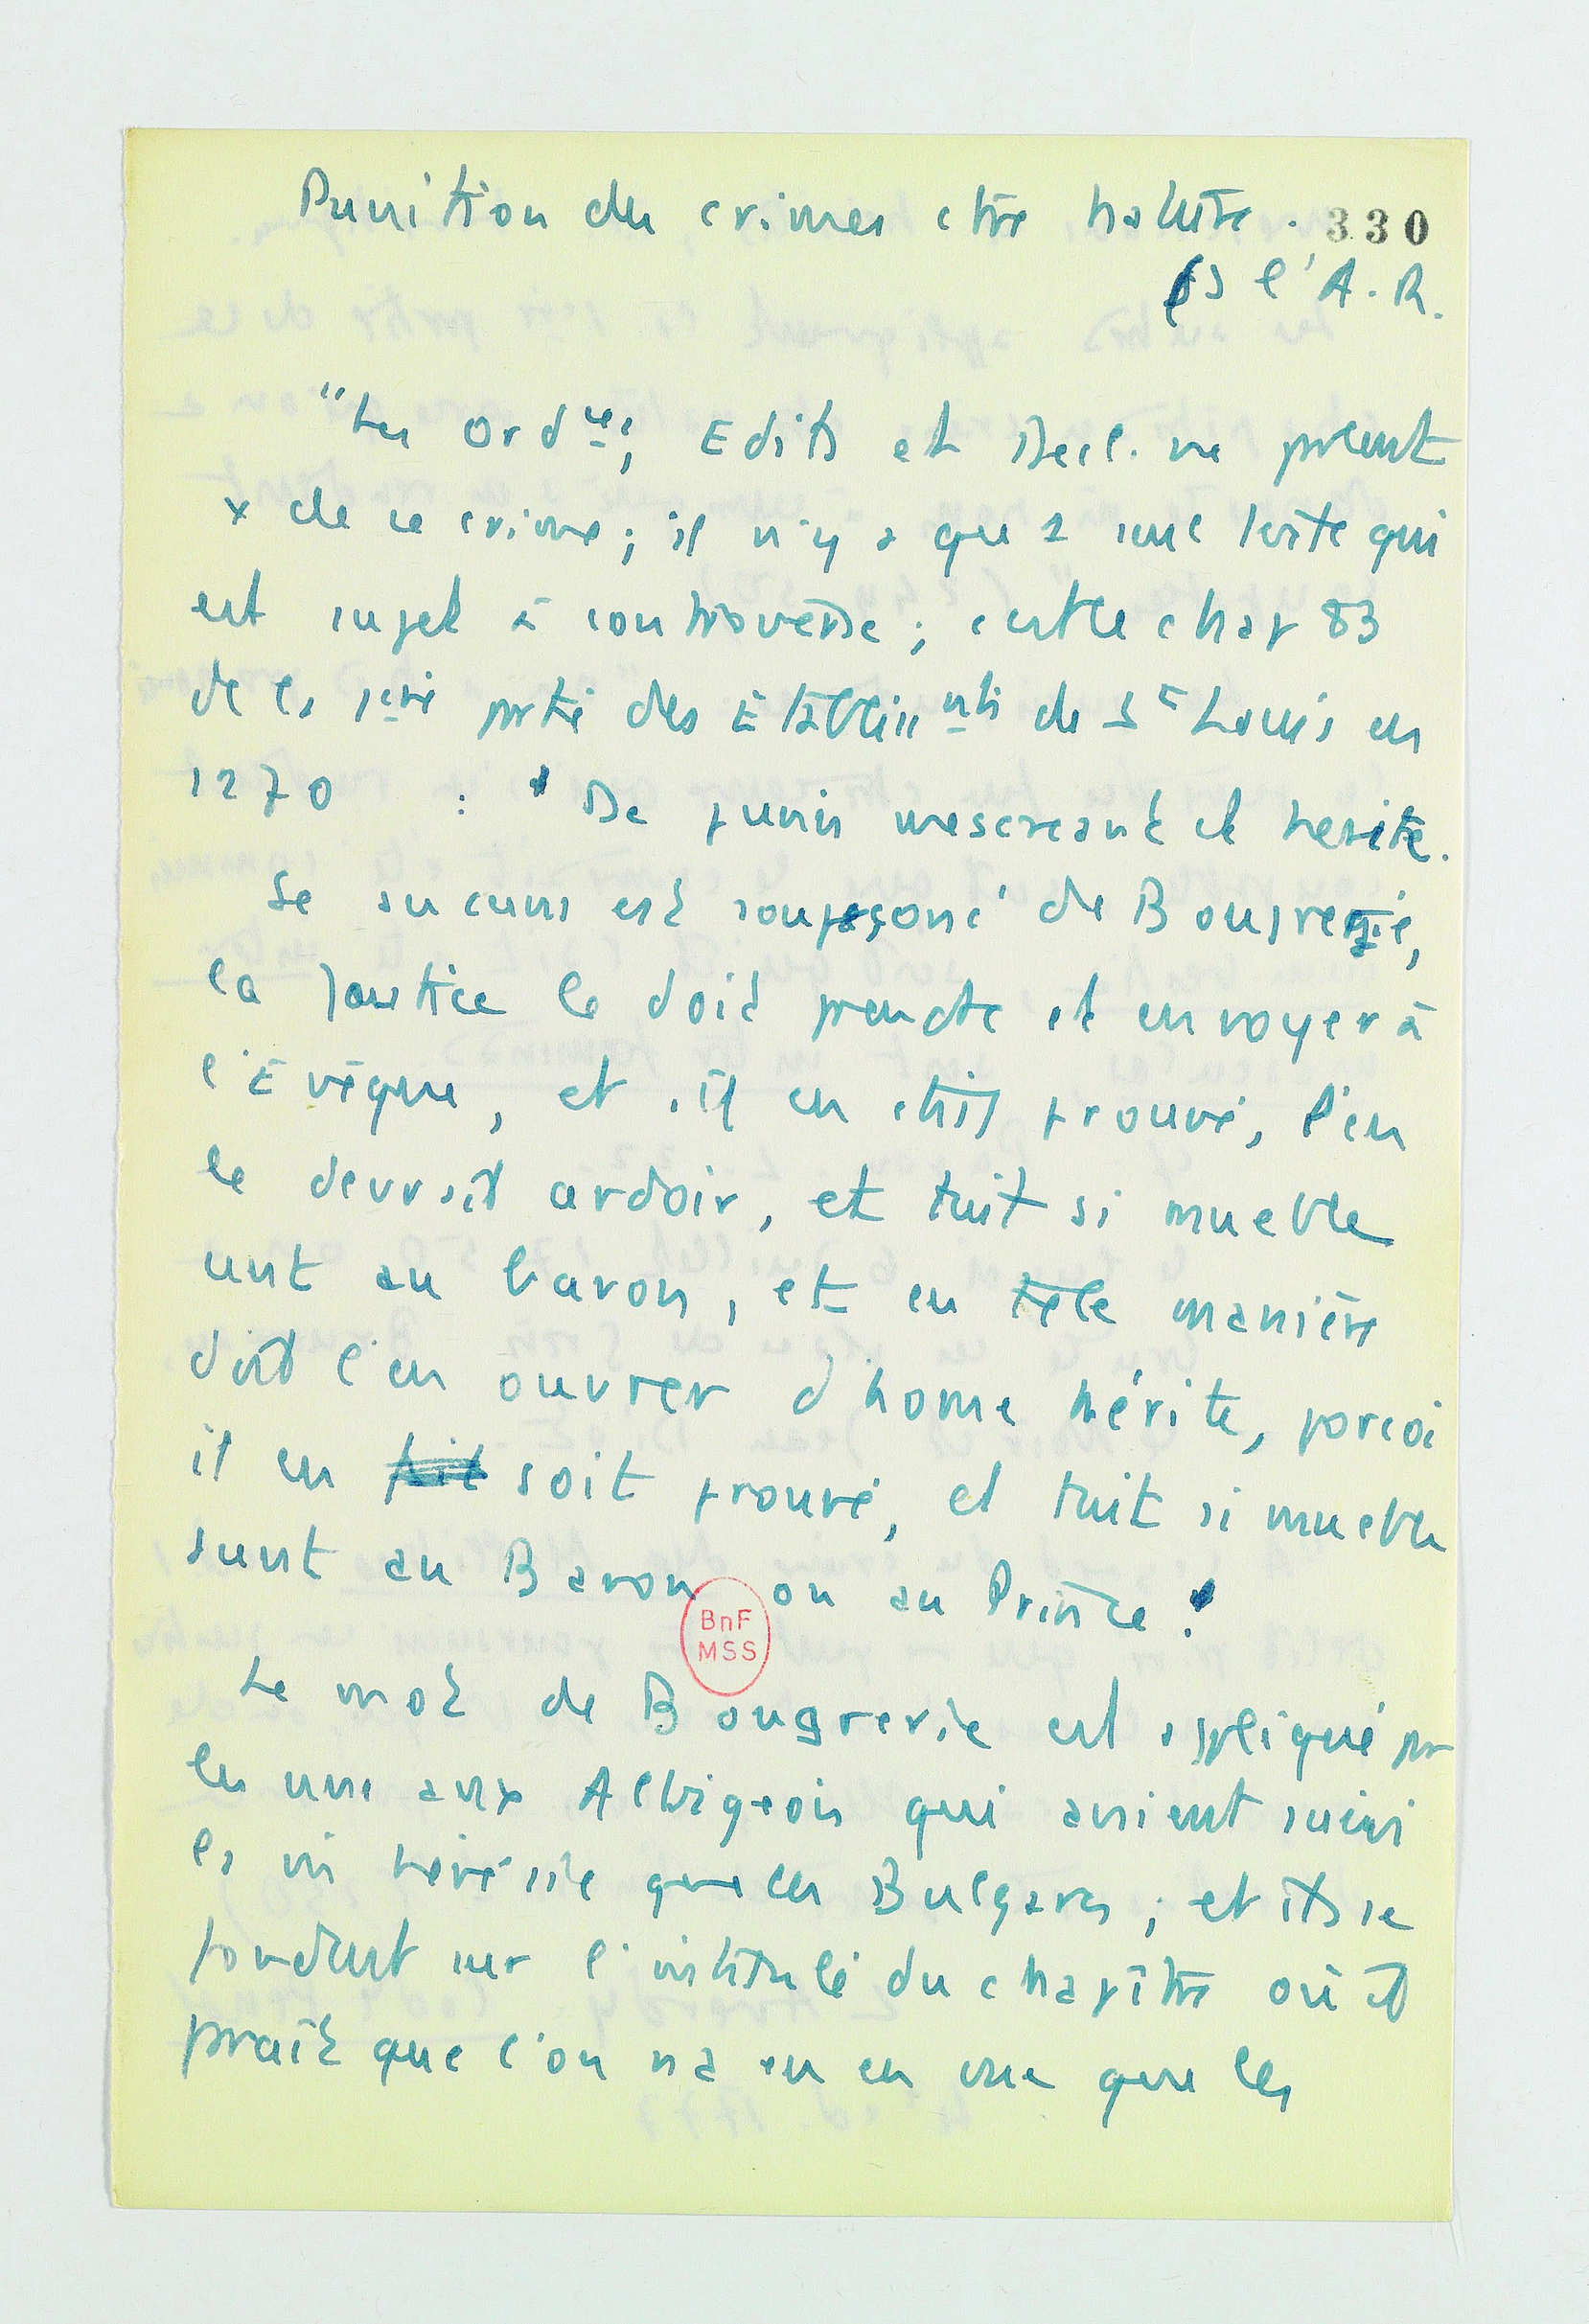 Punition des crimes ctre nature.
330
ds l'A.R.
"Les Ordces, Edits et Decl. ne prlent
x de ce crime ; il n'y a que 1 seul texte qui
est sujet à controverse ; c'est le chap 83
de la 1ère prtie des Etablissnts de St Louis en
1270 : " De punir mescreant et herite.
Se aucuns est soupeçoné de Bougrerie,
la Joustice le doit prendre et envoyer à
l'Evêque, et s'il en était prouvé, l'en
le devrait ardoir, et tuit si mueble
sunt au baron, et en tele manière
doit l'en ouvrer d'home hérite, porcoi
il en soit prouvé, et tuit si mueble
sunt au Baron ou au Prince."
BnF
MSS
Le mot de Bougrerie est appliqué pr
les uns aux Albigeois qui avaient suivi
la m hérésie que les Bulgares ; et ils se
fondent sur l'intitulé du chapitre où il
prait que l'on n'a eu en vue que les